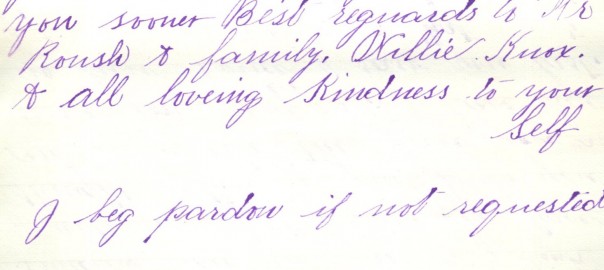 you sooner Best reguards to Mr
Roush & family. Willie Knox.
& all loveing Kindness to your
Self
I beg pardon if not requested